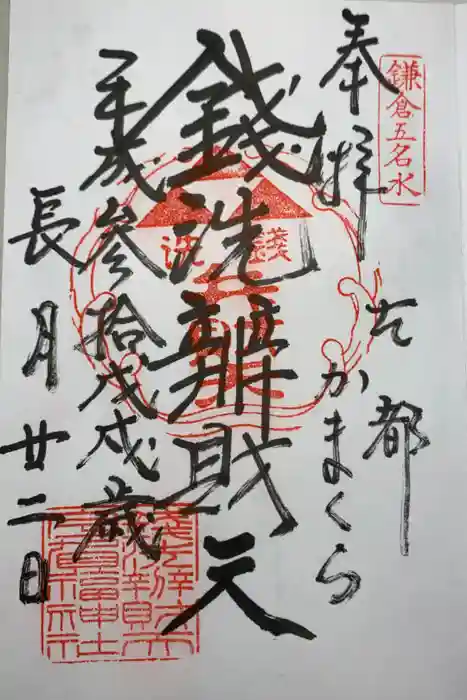 鎌倉五名水
奉拝
古都
かまくら
錢洗辨財天
平成参拾戊戌歳
長月廿二日
錢洗